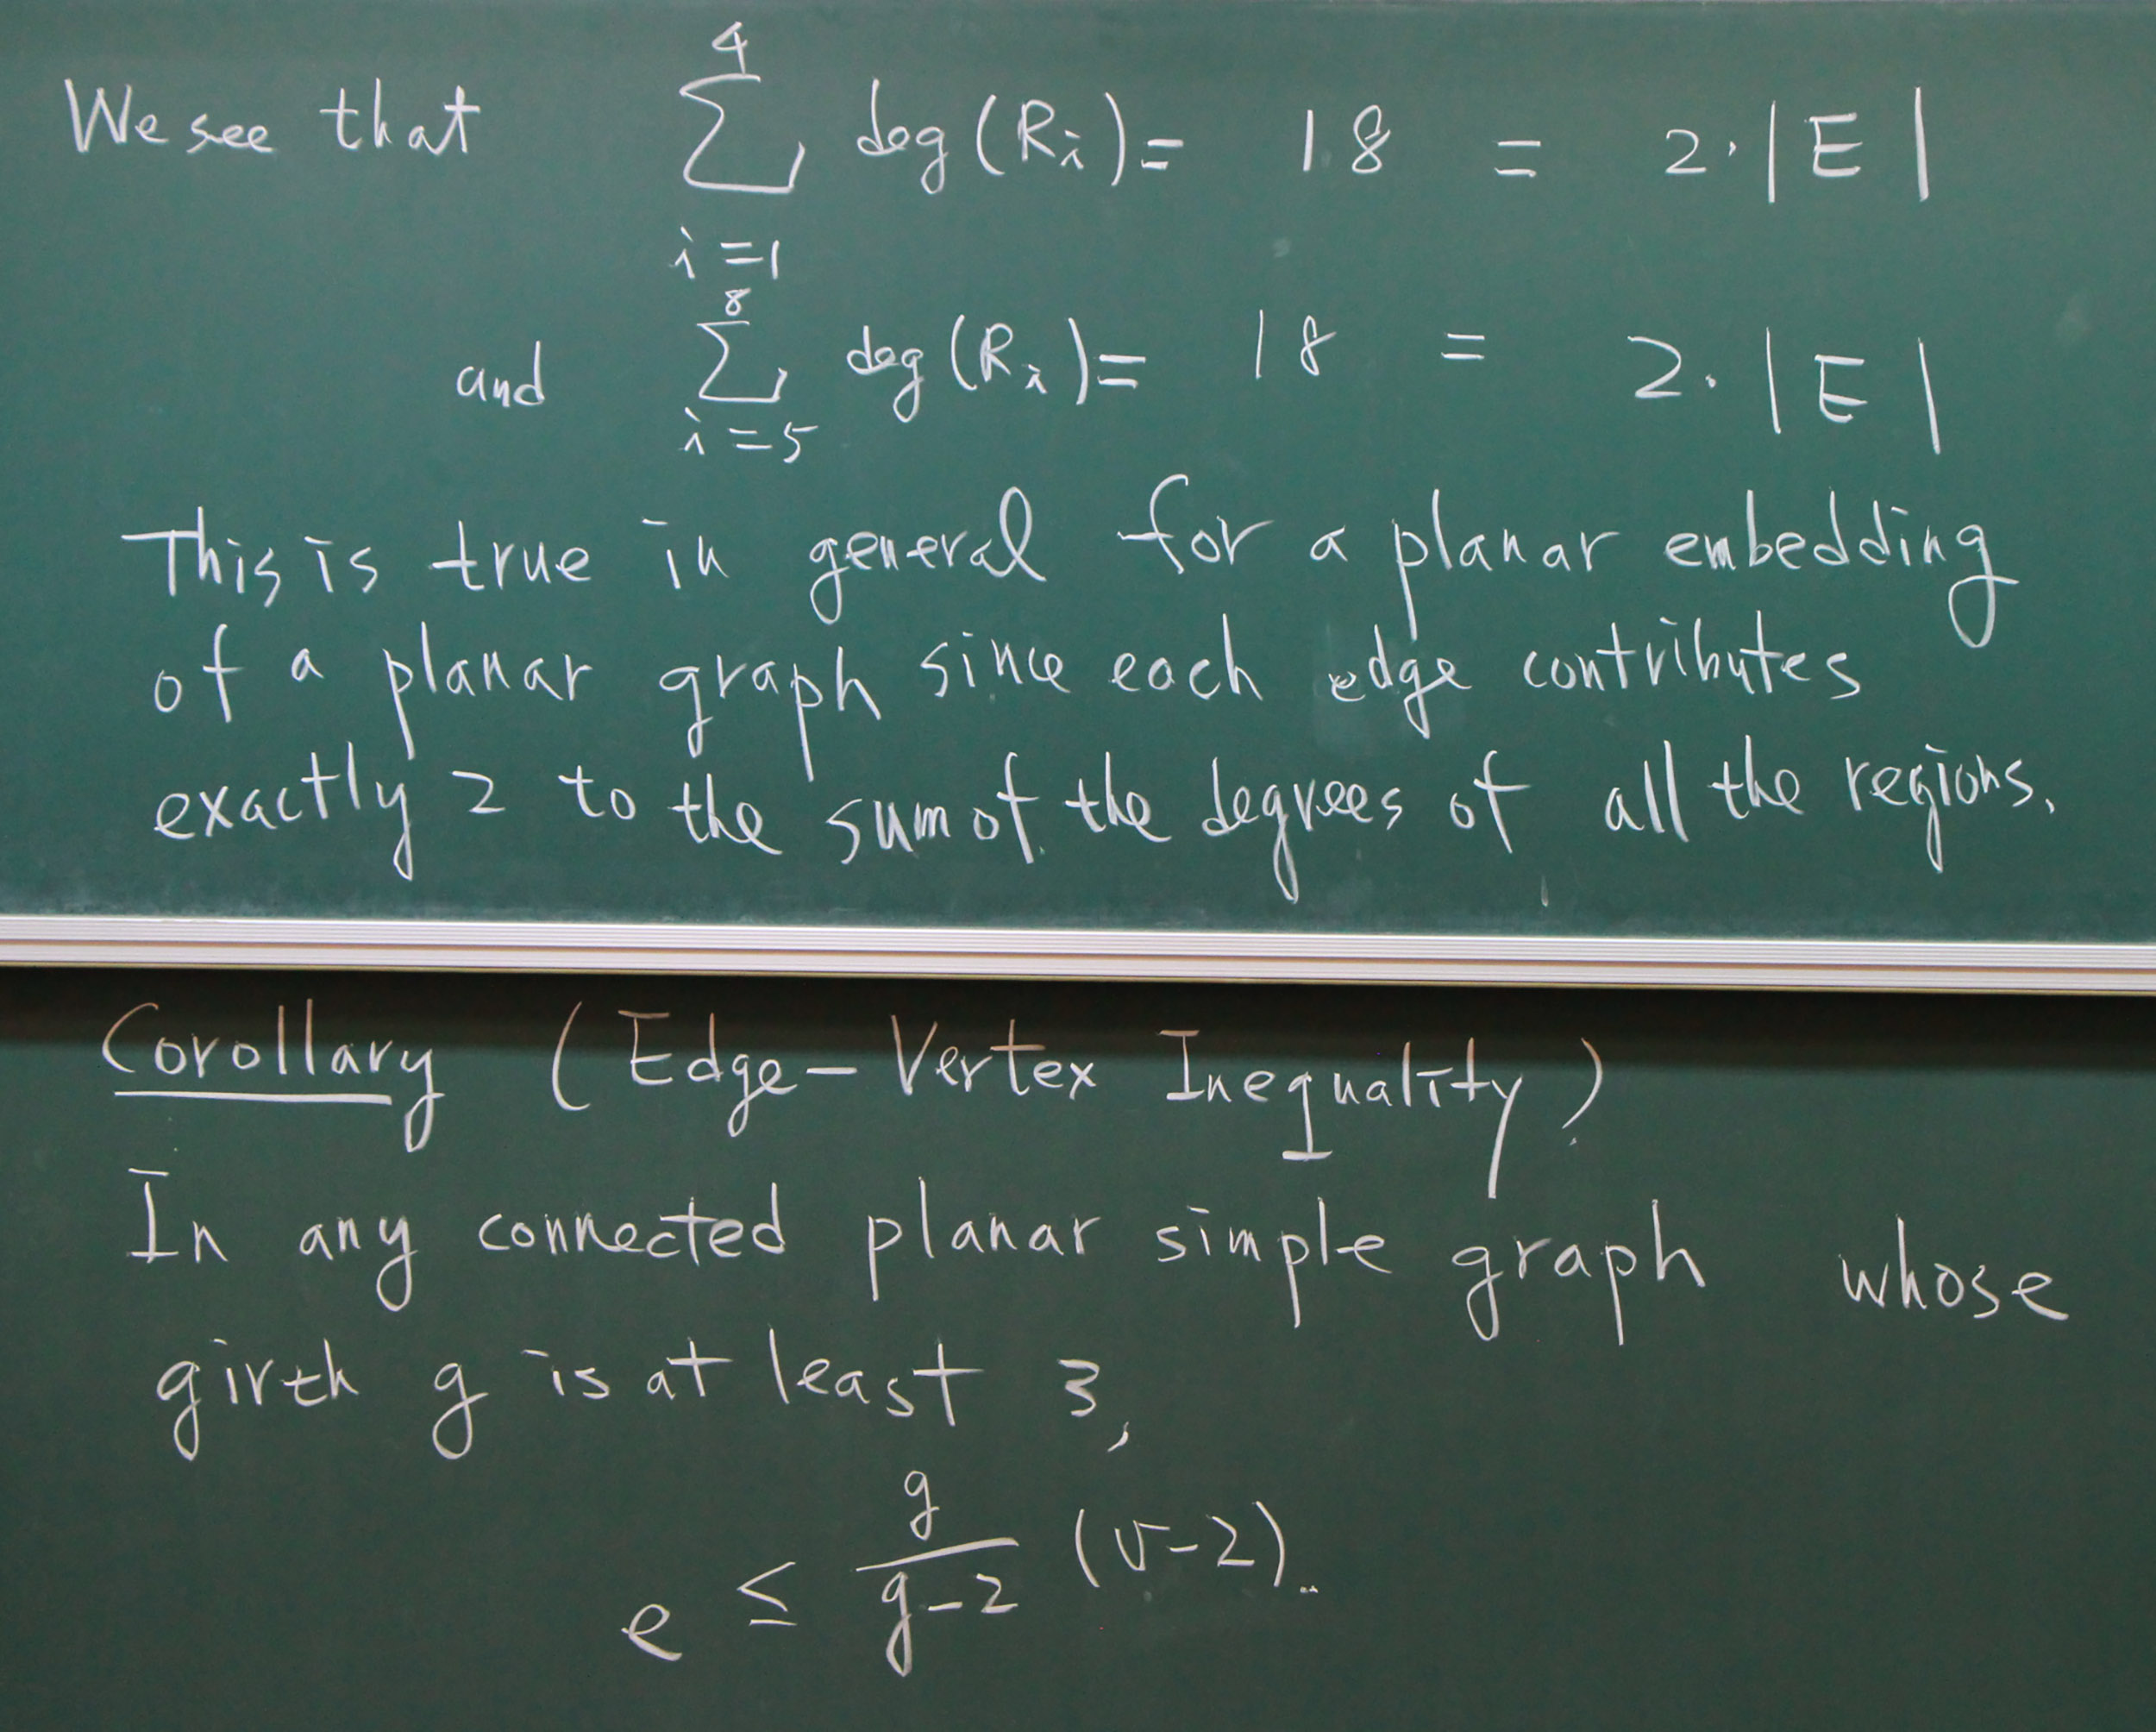 We see that $\sum_{i=1}^{4} \deg(R_i) = 18 = 2 \cdot |E|$
and $\sum_{i=5}^{8} \deg(R_i) = 18 = 2 \cdot |E|$
This is true in general for a planar embedding
of a planar graph since each edge contributes
exactly 2 to the sum of the degrees of all the regions.
Corollary (Edge-Vertex Inequality)
In any connected planar simple graph whose
girth g is at least 3,
$e \leq \frac{g}{g-2} (v-2)$.